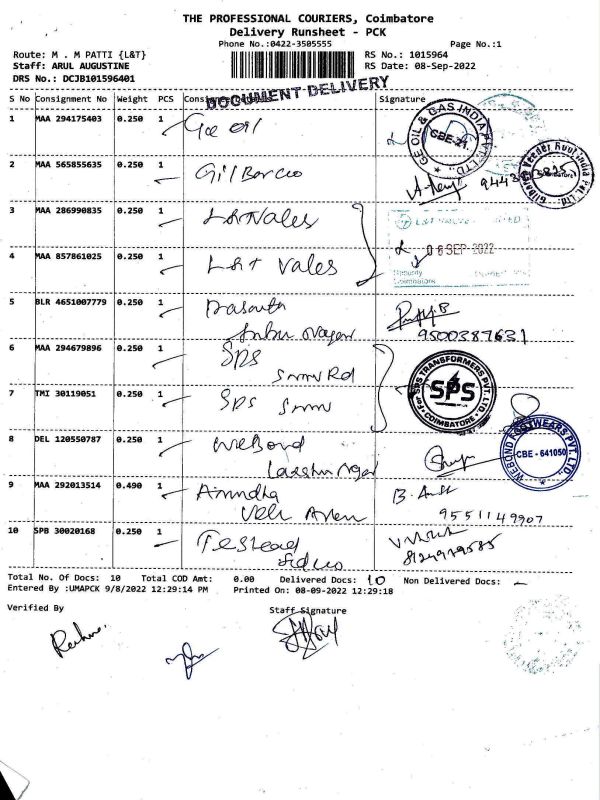 THE PROFESSIONAL COURIERS, Coimbatore
Delivery Runsheet - PCK
Phone No.:0422-3505555 Page No.:1
Route: M . M PATTI {L&T} RS No.: 1015964
Staff: ARUL AUGUSTINE RS Date: 08-Sep-2022
DRS No.: DCJB101596401
DOCUMENT DELIVERY
S No Consignment No Weight PCS Signature
1 MAA 294175403 0.250 1 Ge Oil
GE OIL & GAS INDIA PVT. LTD. CBE-21.
2 MAA 565855635 0.250 1 Gilbarco
Veeder Root India Pvt. Ltd.
3 MAA 286990835 0.250 1 L&T Valves
06 SEP 2022
4 MAA 857861025 0.250 1 L&T Vales
Security
Coimbatore
5 BLR 4651007779 0.250 1
Nagar 9500387631
6 MAA 294679896 0.250 1 Sps
Snmv Rd
For SPS TRANSFORMERS PVT. LTD. SPS COIMBATORE
7 TMI 30119051 0.250 1 Sps Snmv
8 DEL 120550787 0.250 1 WeBond
Nagar
WEBOND FOOTWEARS PVT. LTD. CBE - 641050
9 MAA 292013514 0.490 1
9551149907
10 SPB 30020168 0.250 1
Sidco
Total No. Of Docs: 10 Total COD Amt: 0.00 Delivered Docs: 10 Non Delivered Docs: -
Entered By :UMAPCK 9/8/2022 12:29:14 PM Printed On: 08-09-2022 12:29:18
Verified By Staff Signature